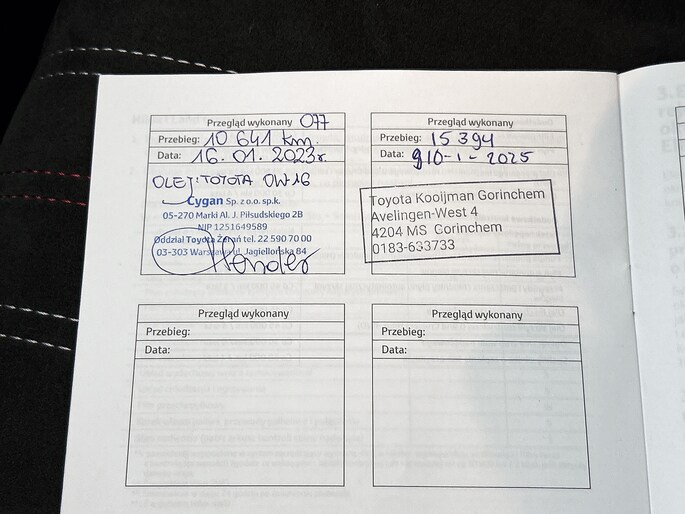 Przegląd wykonany OTT
Przebieg: 10 641 km.
Data: 16.01.2023r.
OLEJ: TOYOTA 0W16
Cygan Sp. z o.o. sp.k.
05-270 Marki Al. J. Piłsudskiego 2B
NIP 1251649589
Oddział Toyota Żerań tel. 22 590 70 00
03-303 Warszawa ul. Jagiellońska 84
Przegląd wykonany
Przebieg: 15394
Data: 10-1-2025
Toyota Kooijman Gorinchem
Avelingen-West 4
4204 MS Gorinchem
0183-633733
Przegląd wykonany
Przebieg:
Data:
Przegląd wykonany
Przebieg:
Data: